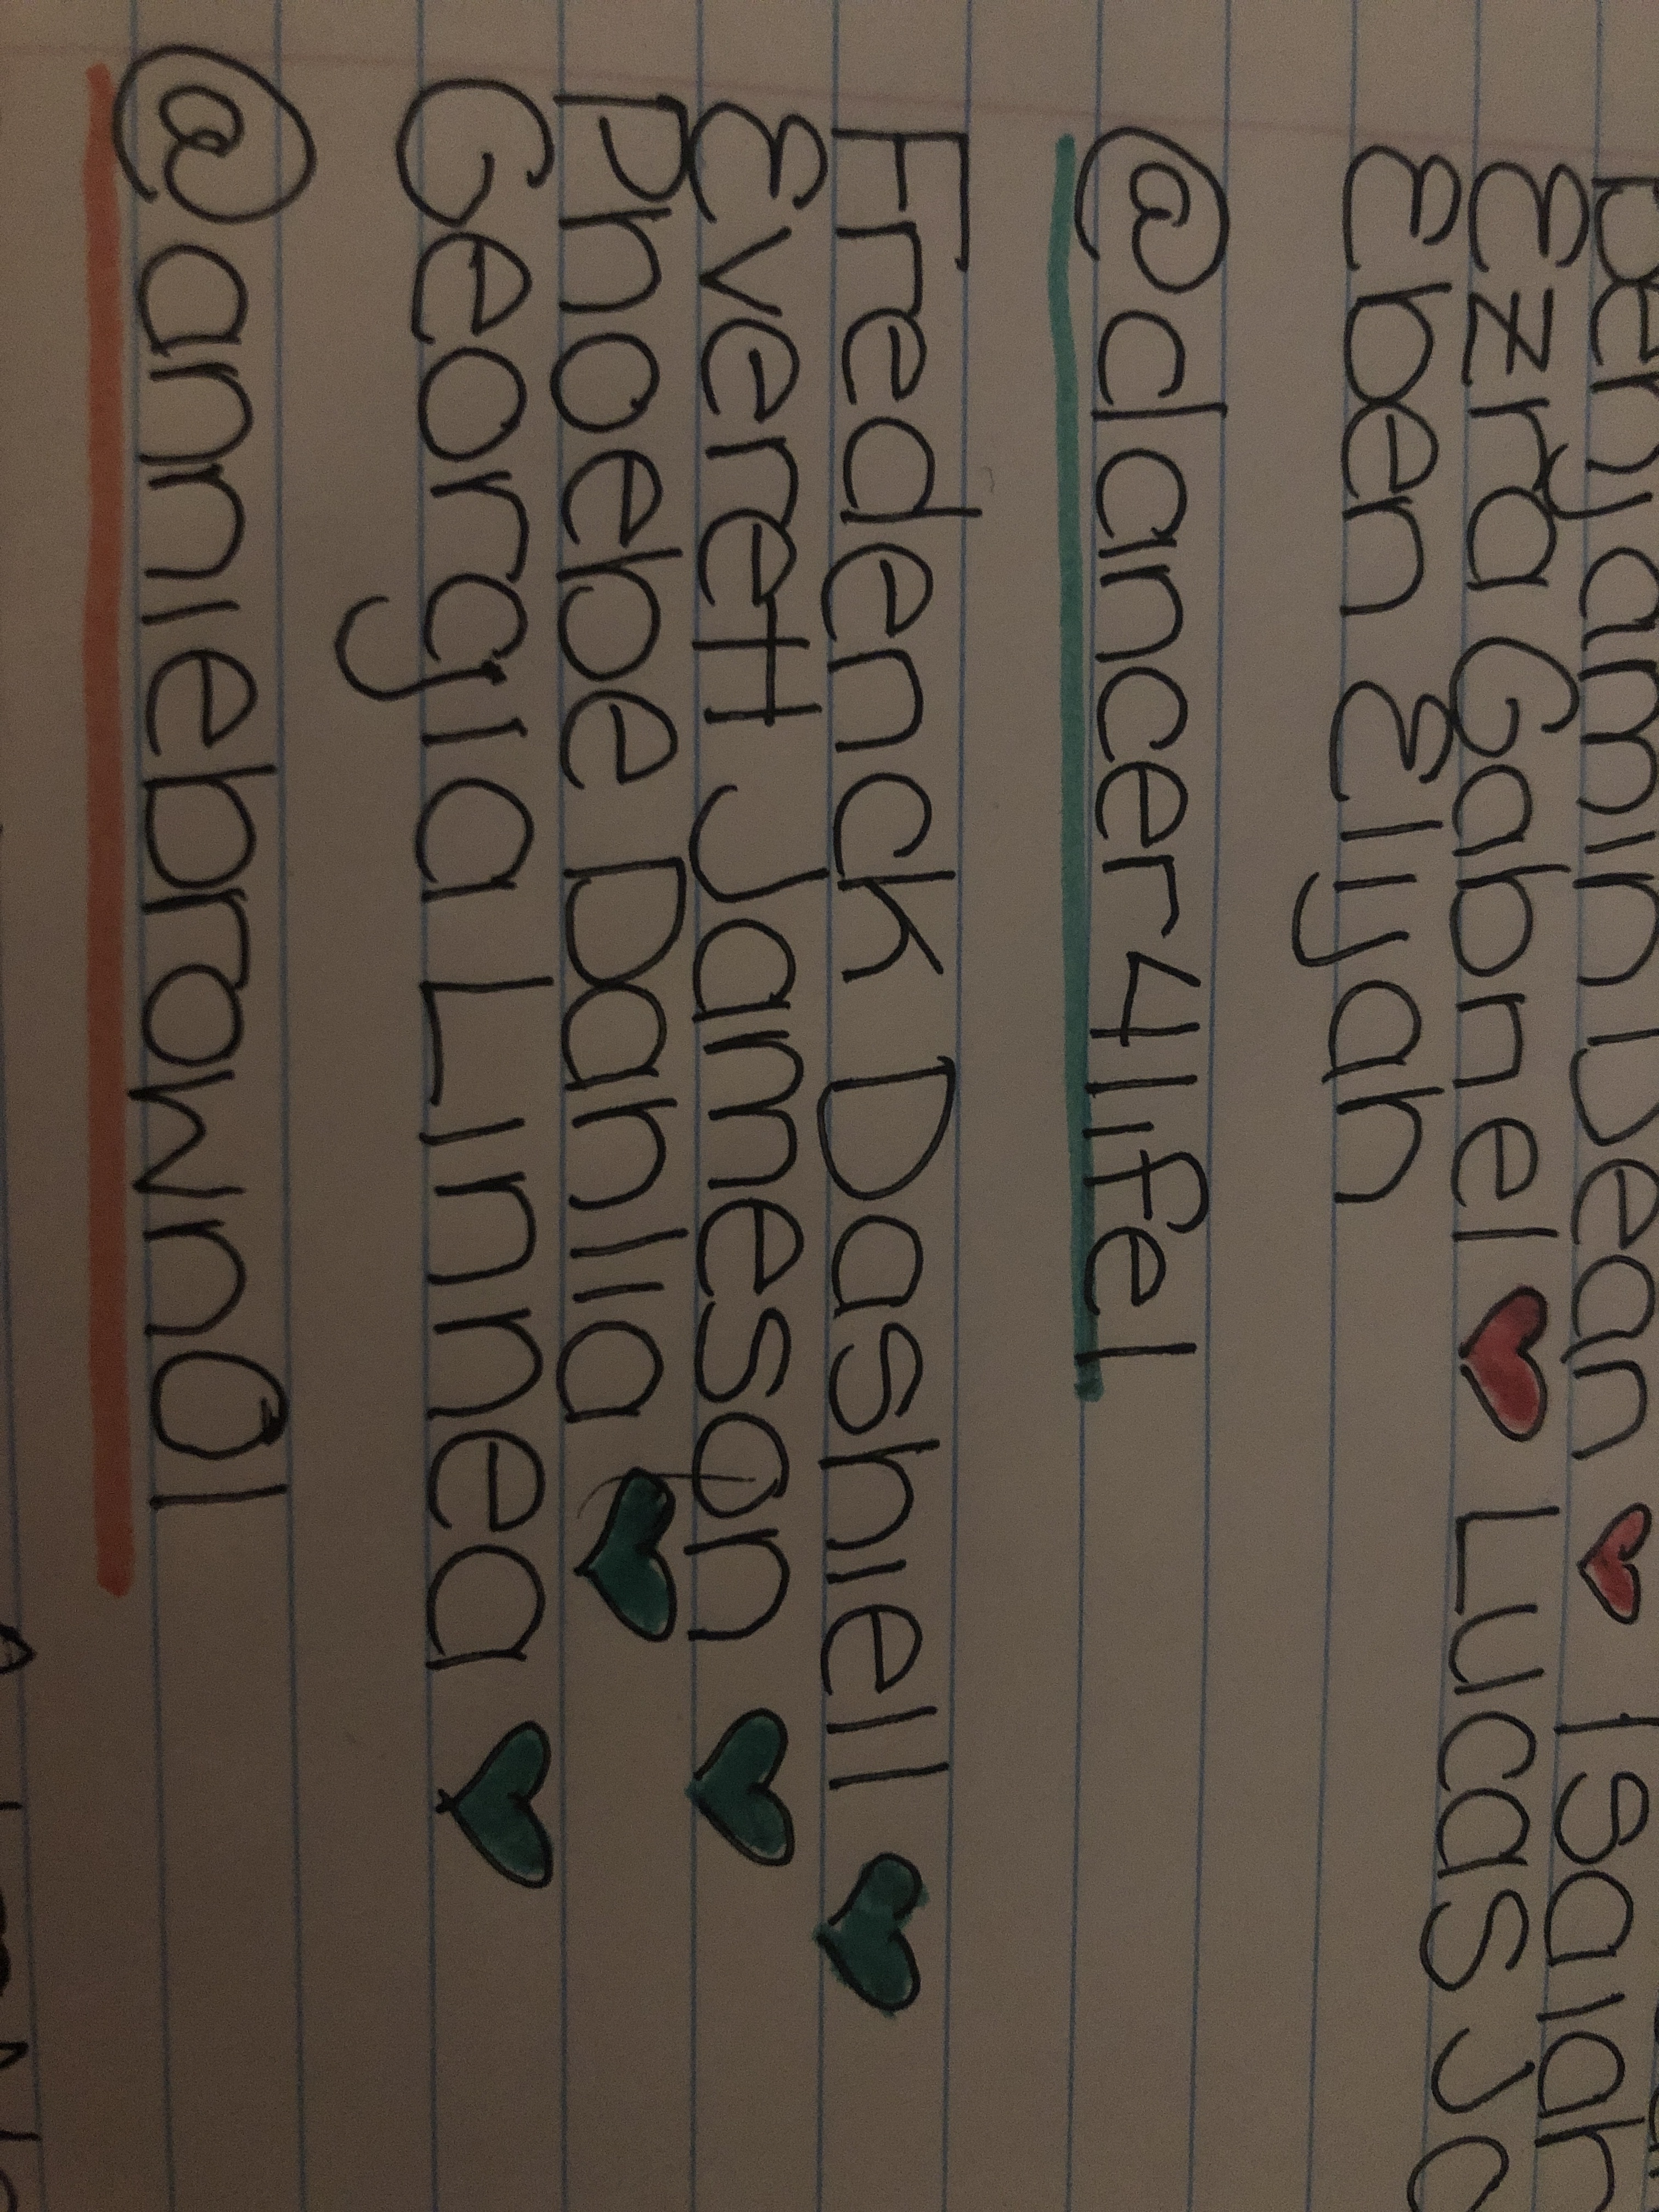 Benjamin Dean ♥ Isaiah
Ezra Gabriel ♥ Lucas Jo
Eben Elijah
@dancer4life1
Frederick Dashiell ♥
Everett Jameson ♥
Phoebe Dahlia ♥
Georgia Linnea ♥
@anniebrown01